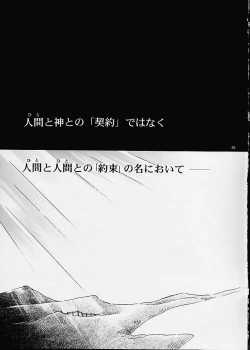 人間と神との「契約」ではなく
人間と人間との「約束」の名において──